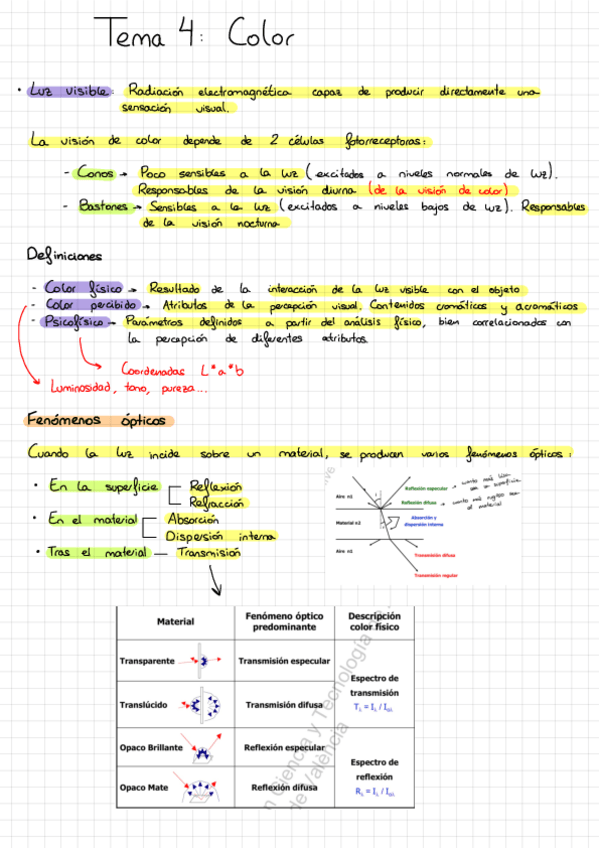 Tema 4: Color
• Luz visible: Radiación electromagnética capaz de producir directamente una
sensación visual.
La visión de color depende de 2 células fotorreceptoras:
- Conos → Poco sensibles a la luz (excitados a niveles normales de luz).
Responsables de la visión diurna (de la visión de color)
- Bastones → Sensibles a la luz (excitados a niveles bajos de luz). Responsables
de la visión nocturna
Definiciones
- Color físico → Resultado de la interacción de la luz visible con el objeto
- Color percibido → Atributos de la percepción visual. Contenidos cromáticos y acromáticos
- Psicofísico → Parámetros definidos a partir del análisis físico, bien correlacionados con
la percepción de diferentes atributos.
Coordenadas L*a*b
Luminosidad, tono, pureza...
Fenómenos ópticos
Cuando la luz incide sobre un material, se producen varios fenómenos ópticos:
• En la superficie
Reflexión
Refracción
• En el material
Absorción
Dispersión interna
• Tras el material — Transmisión
Aire n1
Material n2
Aire n1
Reflexión especular
Reflexión difusa
Absorción y
dispersión interna
Transmisión difusa
Transmisión regular
Material
Fenómeno óptico
predominante
Descripción
color físico
Transparente
Transmisión especular
Translúcido
Transmisión difusa
Espectro de
transmisión
Opaco Brillante
Reflexión especular
Opaco Mate
Reflexión difusa
Espectro de
reflexión
n Ciencia y Tecnología de
de València